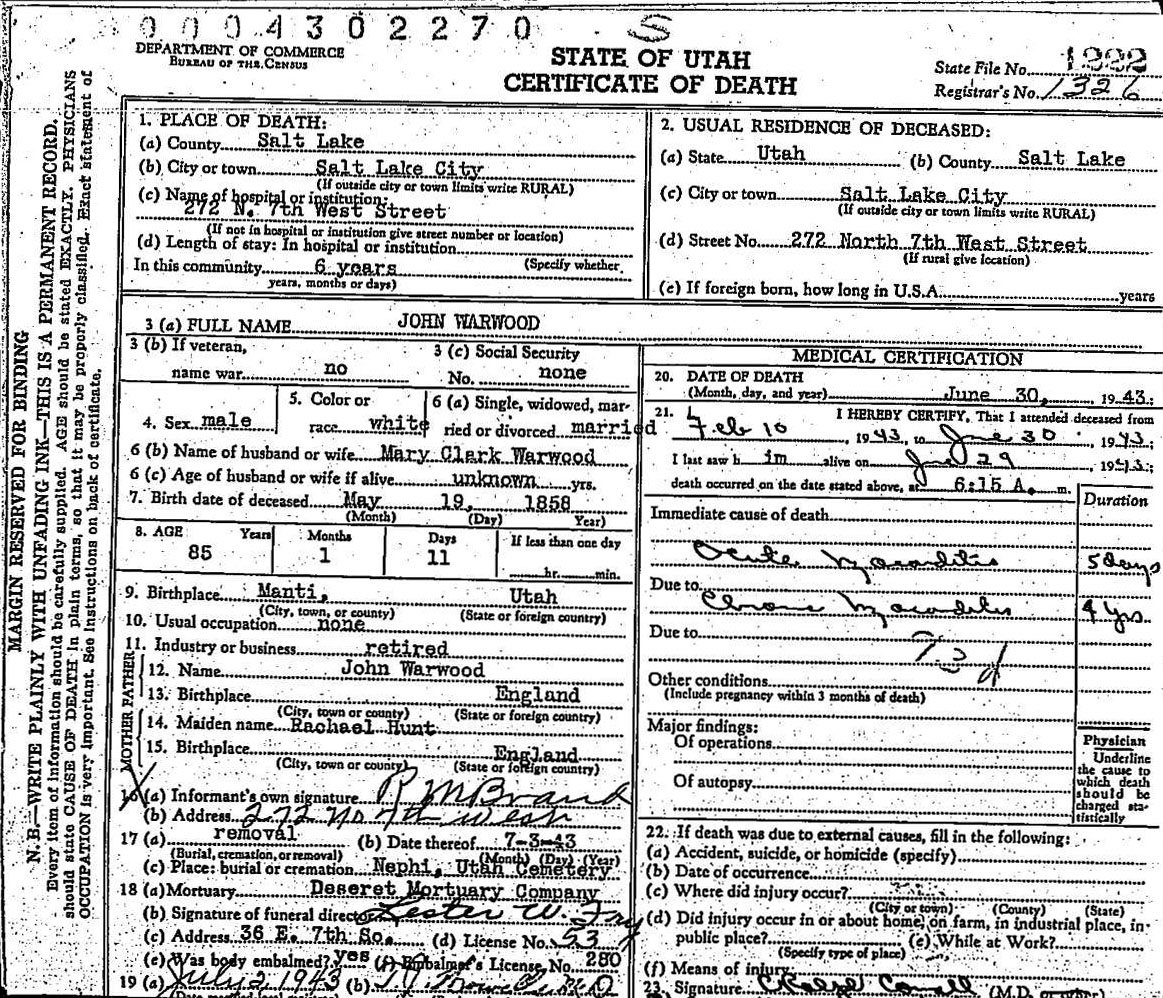 0 0 0 4 3 0 2 2 7 0 S
DEPARTMENT OF COMMERCE
BUREAU OF THE CENSUS
STATE OF UTAH
CERTIFICATE OF DEATH
State File No. 1222
Registrar's No. 1326
MARGIN RESERVED FOR BINDING
N. B.—WRITE PLAINLY WITH UNFADING INK—THIS IS A PERMANENT RECORD.
Every item of information should be carefully supplied. AGE should be stated EXACTLY. PHYSICIANS
should state CAUSE OF DEATH in plain terms, so that it may be properly classified. Exact statement of
OCCUPATION is very important. See instructions on back of certificate.
1. PLACE OF DEATH:
(a) County Salt Lake
(b) City or town Salt Lake City
(If outside city or town limits write RURAL)
(c) Name of hospital or institution:
272 N. 7th West Street
(If not in hospital or institution give street number or location)
(d) Length of stay: In hospital or institution
In this community 6 years (Specify whether
years, months or days)
2. USUAL RESIDENCE OF DECEASED:
(a) State Utah (b) County Salt Lake
(c) City or town Salt Lake City
(If outside city or town limits write RURAL)
(d) Street No. 272 North 7th West Street
(If rural give location)
(e) If foreign born, how long in U.S.A. years
3 (a) FULL NAME JOHN WARWOOD
3 (b) If veteran, 3 (c) Social Security
name war no No. none
4. Sex male 5. Color or race white 6 (a) Single, widowed, married or divorced married
6 (b) Name of husband or wife Mary Clark Warwood
6 (c) Age of husband or wife if alive unknown yrs.
7. Birth date of deceased May 19, 1858
(Month) (Day) Year)
8. AGE Years Months Days If less than one day
85 1 11 hr. min.
9. Birthplace Manti, Utah
(City, town, or county) (State or foreign country)
10. Usual occupation none
11. Industry or business retired
FATHER
12. Name John Warwood
13. Birthplace England
(City, town or county) (State or foreign country)
MOTHER
14. Maiden name Rachael Hunt
15. Birthplace England
(City, town or county) (State or foreign country)
16 (a) Informant's own signature R M Brand
(b) Address 272 No 7th West
17 (a) removal (b) Date thereof 7-3-43
(Burial, cremation, or removal) (Month) (Day) (Year)
(c) Place: burial or cremation Nephi, Utah Cemetery
18 (a) Mortuary Deseret Mortuary Company
(b) Signature of funeral director Lester W.
(c) Address 36 E. 7th So. (d) License No. 53
(e) Was body embalmed? yes (f) Embalmer's License No. 280
19 (a) July 2 1943 (b)
MEDICAL CERTIFICATION
20. DATE OF DEATH
(Month, day, and year) June 30, 1943;
21. I HEREBY CERTIFY, That I attended deceased from
Feb 10 1943, to June 30 1943;
I last saw h im alive on June 29 1943;
death occurred on the date stated above, at 6:15 A. m.
Duration
Immediate cause of death
Acute Myocarditis 5 days
Due to Chronic Myocarditis 4 yrs.
Due to
Other conditions
(Include pregnancy within 3 months of death)
Major findings:
Of operations
Of autopsy
Physician
Underline
the cause to
which death
should be
charged sta-
tistically
22. If death was due to external causes, fill in the following:
(a) Accident, suicide, or homicide (specify)
(b) Date of occurrence
(c) Where did injury occur?
(City or town) (County) (State)
(d) Did injury occur in or about home, on farm, in industrial place, in-
public place? (e) While at Work?
(Specify type of place)
(f) Means of injury
23. Signature (M.D.